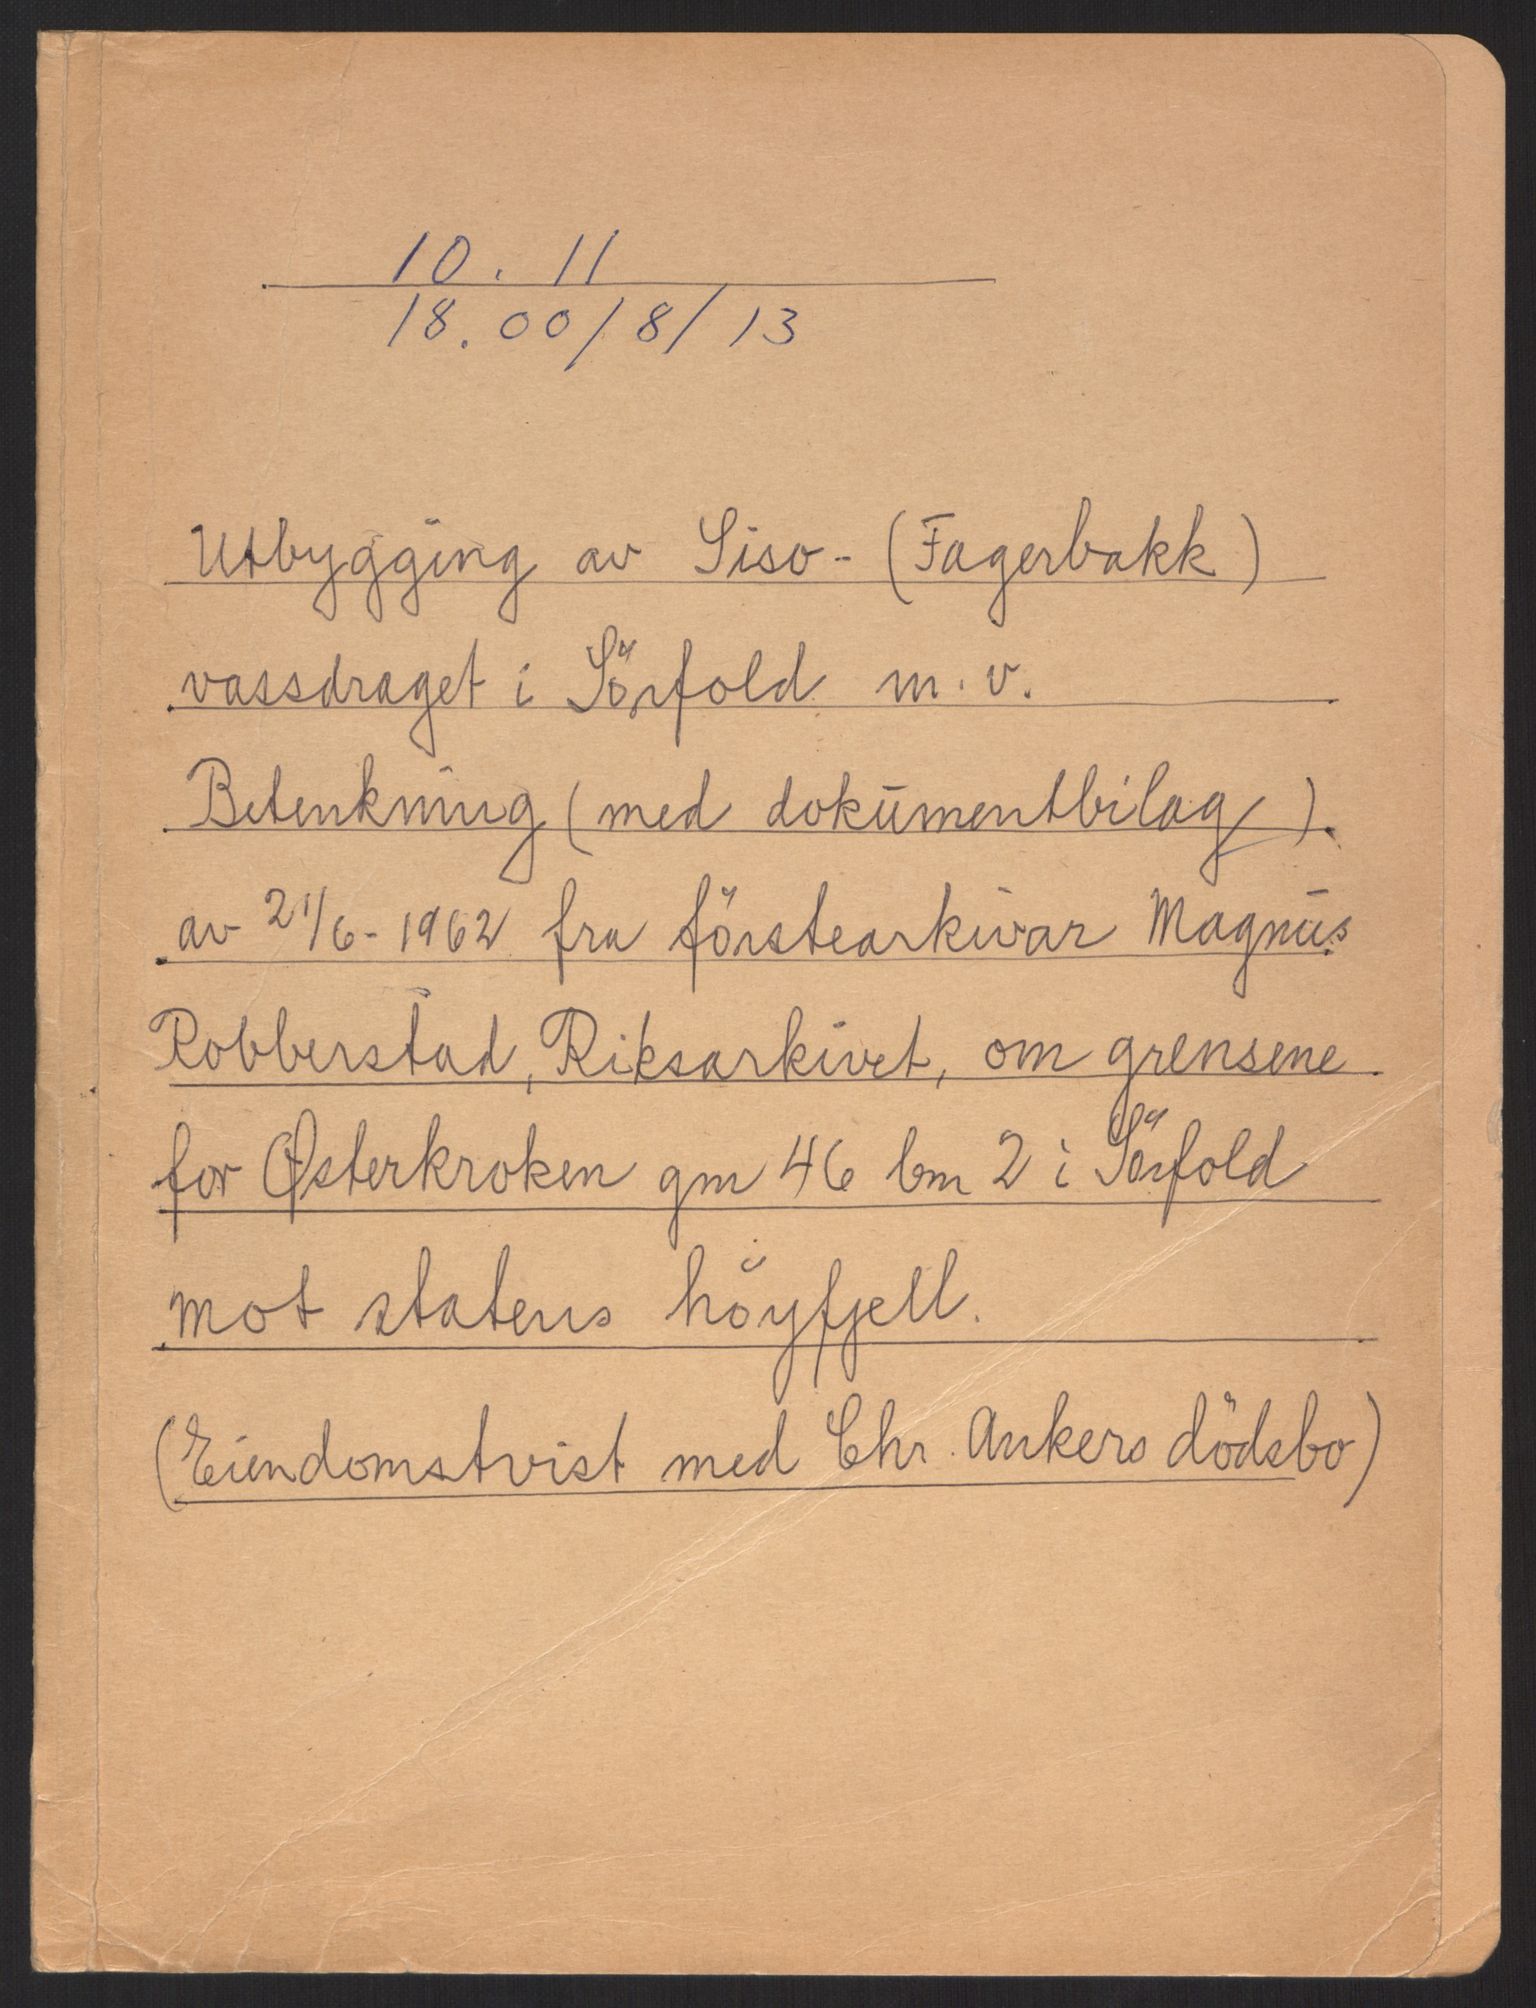 10. 11
18.00/8/13
Utbygging av Siso- (Fagerbakk)
vassdraget i Sörfold m.v.
Betenkning (med dokumentbilag).
av 21/6-1962 fra förstearkivar Magnus
Robberstad, Riksarkivet, om grensene
for Østerkroken gnr 46 bnr 2 i Sörfold
mot statens höyfjell.
(Eiendomstvist med Chr. Ankers dödsbo)